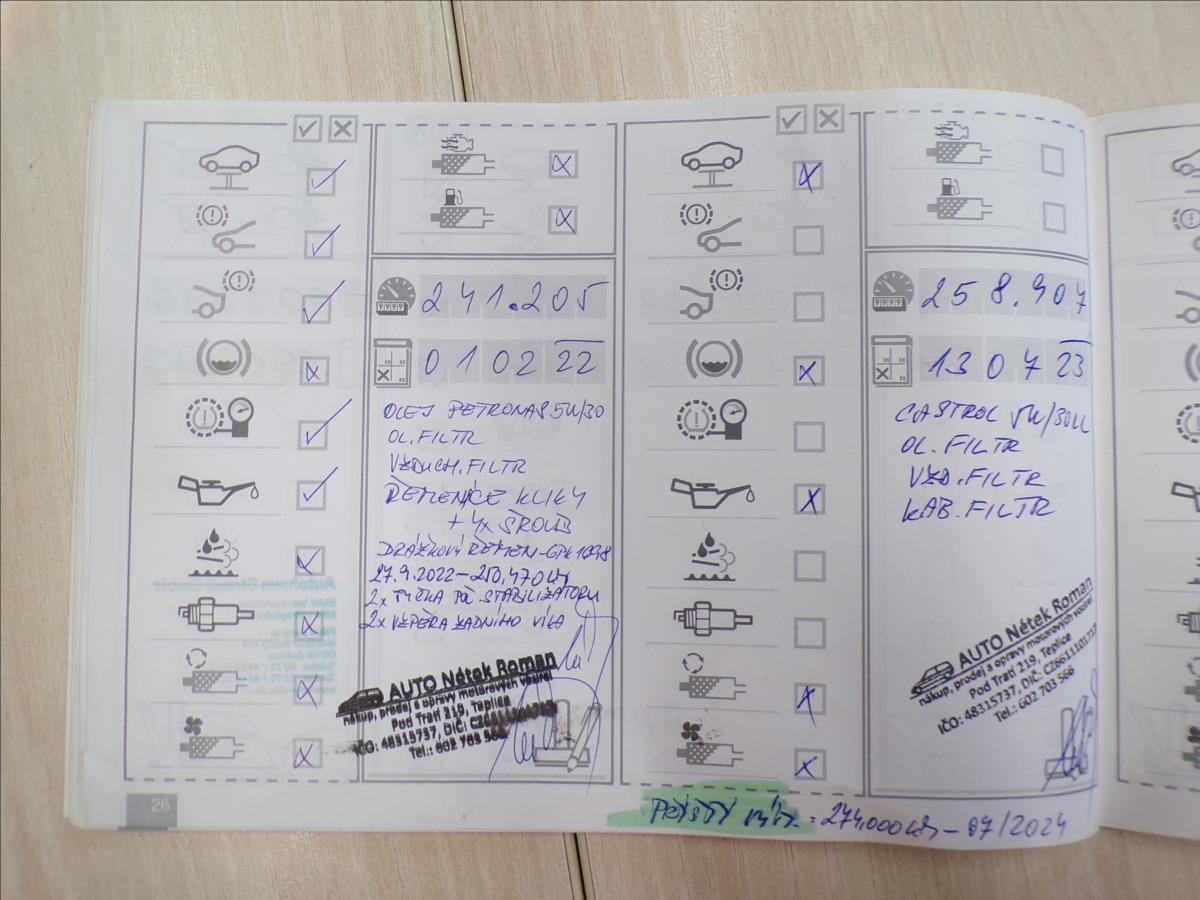 241.205
01 02 22
OLEJ PETRONAS 5W/30
OL. FILTR
VZDUCH. FILTR
ŘEMENICE KLIKY
+ 4x ŠROUB
DRÁŽKOVÝ ŘEMEN-6PK1098
27.9.2022-250,470 km
2x TYČKA PŘ STABILIZÁTORU
2x VZPĚRA ZADNÍHO VÍKA
AUTO Nétek Roman
nákup, prodej a opravy motorových vozidel
Pod Tratí 219, Teplice
IČO: 48315737, DIČ:
Tel.: 602 703 566
26
258.907
13 07 23
CASTROL 5W/30LL
OL. FILTR
VZD. FILTR
KAB. FILTR
AUTO Nétek Roman
nákup, prodej a opravy motorových vozidel
Pod Tratí 219, Teplice
IČO: 48315737, DIČ: CZ6611101717
Tel.: 602 703 566
PŘÍŠTÍ = 274.000 km - 07/2024